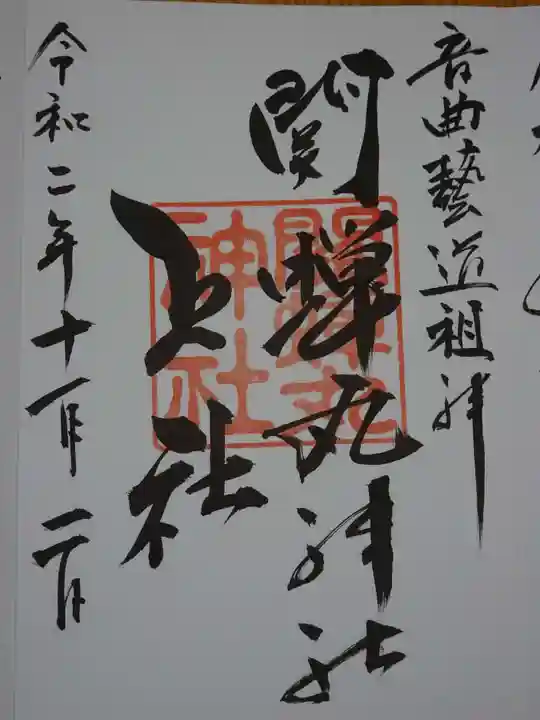 音曲藝道祖神
関蟬丸神社
上社
令和二年十一月二日
関蟬丸
神社